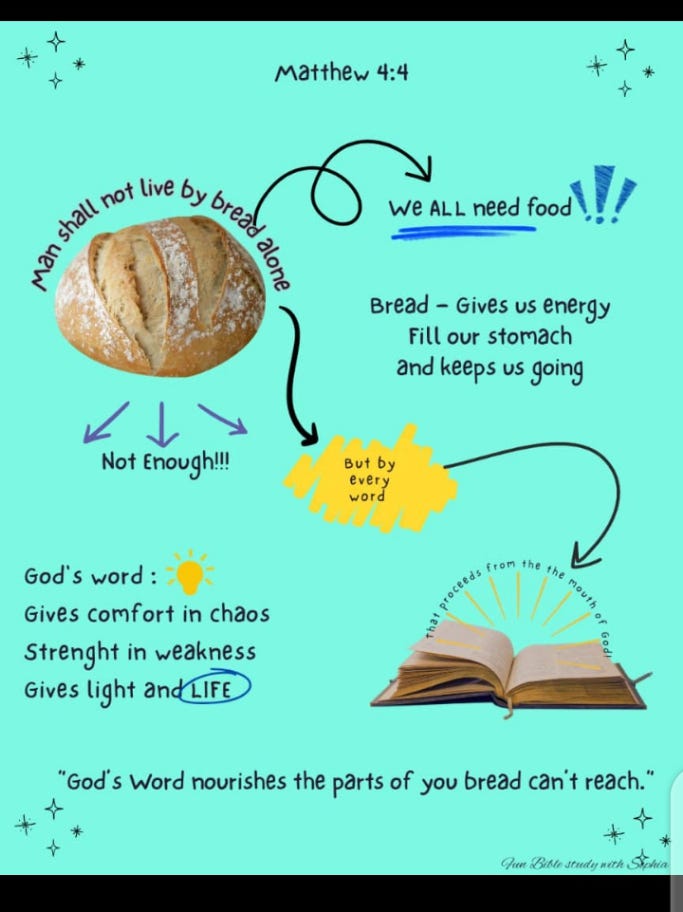 Matthew 4:4
Man shall not live by bread alone
We ALL need food
Bread – Gives us energy
Fill our stomach
and keeps us going
Not Enough!!!
But by
every
word
That proceeds from the the mouth of God!
God's word :
Gives comfort in chaos
Strenght in weakness
Gives light and LIFE
"God's Word nourishes the parts of you bread can't reach."
Fun Bible study with Sophia